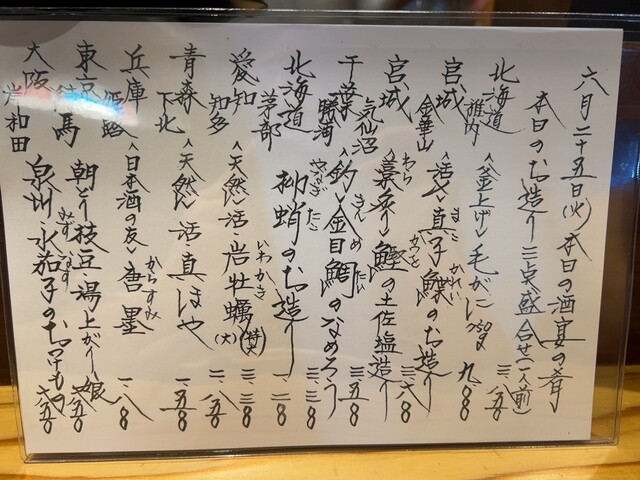 六月二十五日(火)本日の酒宴の肴
本日のお造り三点盛合せ(一人前) 三、八五〇
北海道 稚内 〈釜上げ〉毛がに 九、八〇〇
宮城 金華山 〈活〆〉真子鰈のお造り まこ かれい
宮城 気仙沼 〈藁炙り〉鰹の土佐塩造り わら かつを
千葉 勝浦 〈釣〉金目鯛のなめろう きんめ たい 三、三〇〇
北海道 茅部 柳蛸のお造り やなぎ たこ
愛知 知多 〈天然〉活 岩牡蠣 いわかき (大)
青森 下北 〈天然〉活 真ほや 一、五〇〇
兵庫 姫路 〈日本酒の友〉唐墨 からすみ 一、八〇〇
東京 練馬 朝〆り枝豆・湯上がり娘
大阪 岸和田 泉州水茄子のおつけもの みず なす 六五〇